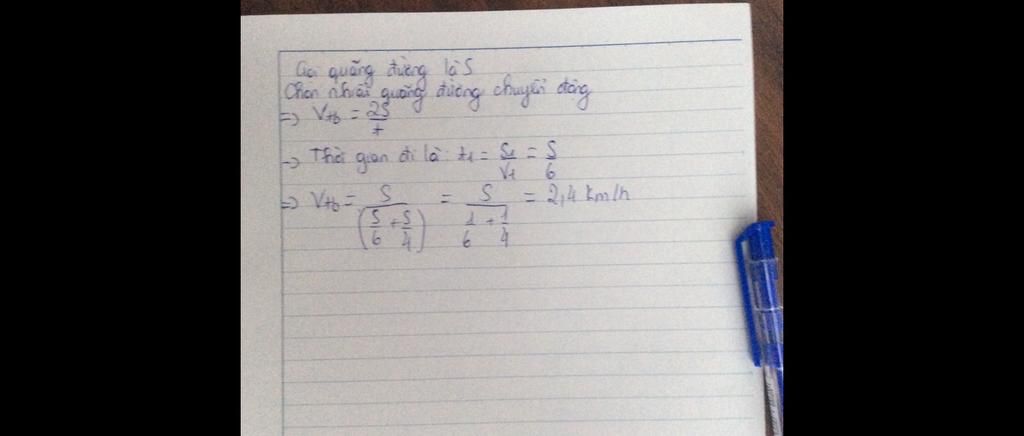 Gọi quãng đường là S
Chọn nhiều quãng đường chuyển động
=> Vtb = 2S/t
-> Thời gian đi là: t1 = S1/V1 = S/6
=> Vtb = S/(S/6 + S/4) = S/(1/6 + 1/4) = 2,4 km/h